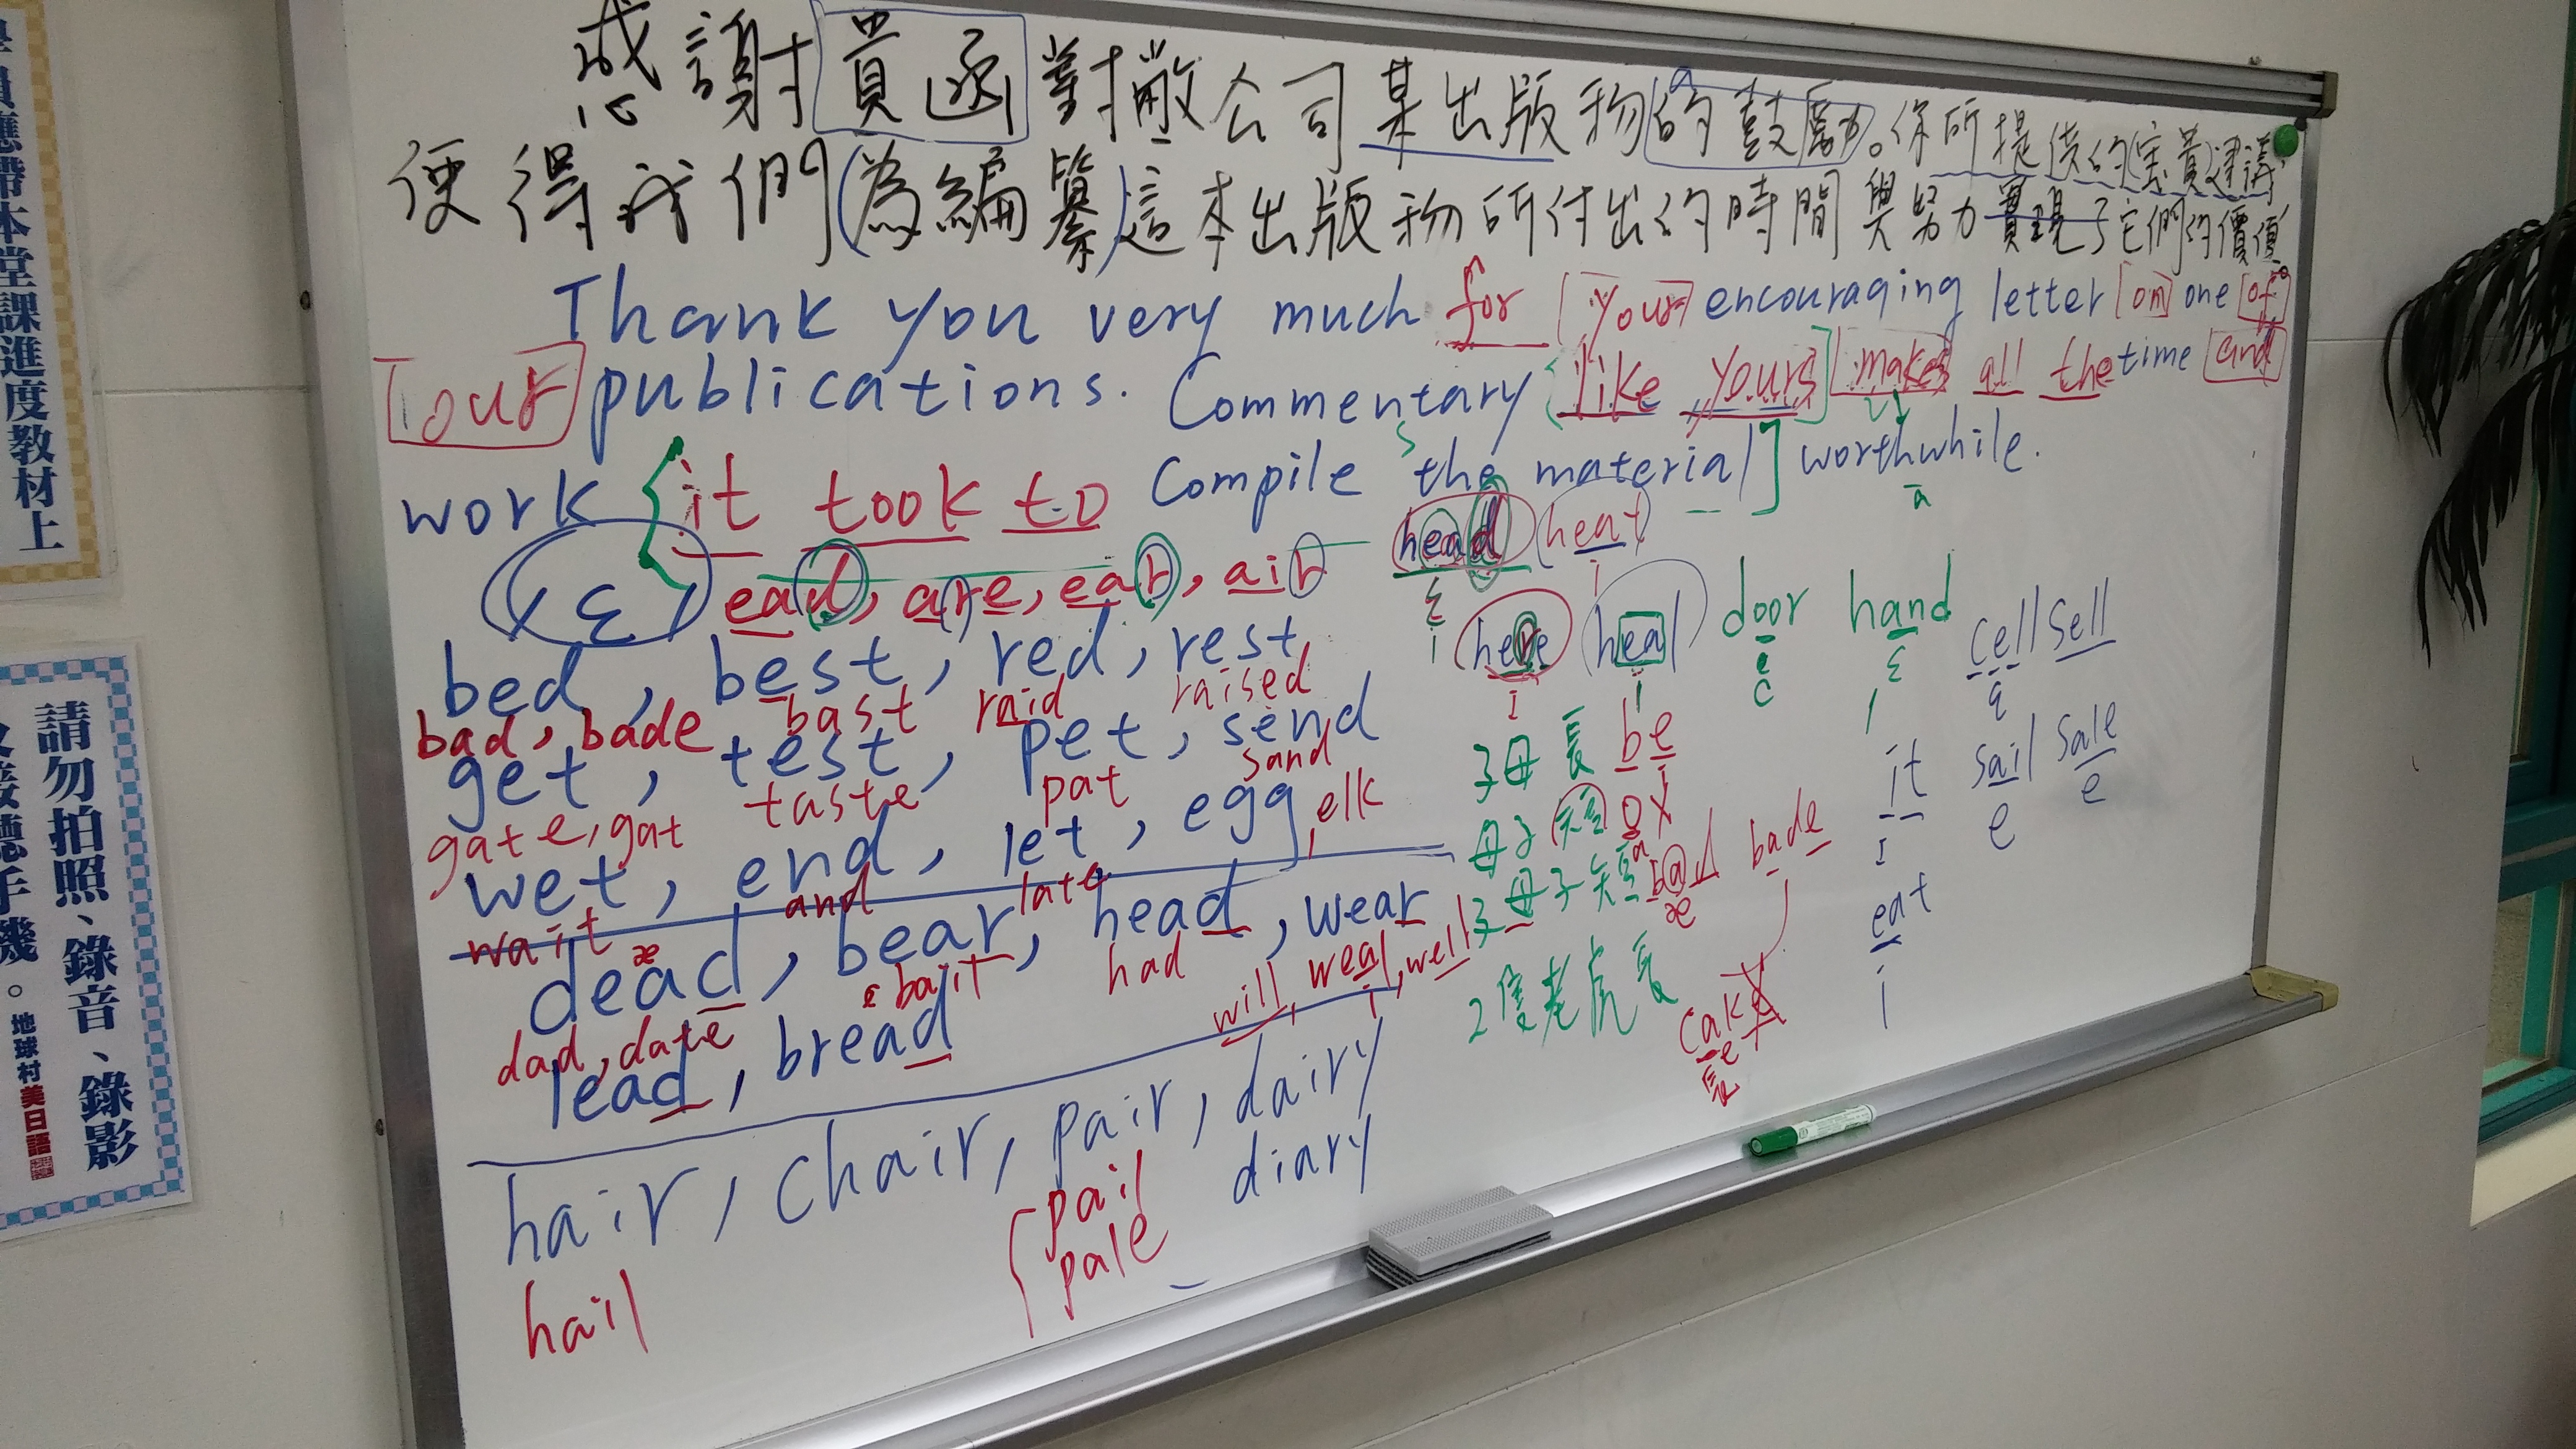 學員應帶本堂課進度教材上
請勿拍照、錄音、錄影
及接聽手機。地球村美日語
感謝貴函對敝公司某出版物的鼓勵。你所提供的寶貴建議,
使得我們(為編纂)這本出版物所付出的時間與努力實現了它們的價值。
Thank you very much for [your] encouraging letter [on] one [of]
[our] publications. Commentary [like yours] makes all the time [and]
work {it took to compile the material] worthwhile.
s
a
/ɛ/ ead, are, ear, air
bed, best, red, rest
bad, bade bast raid raised
get, test, pet, send
gate, gat taste pat sand
wet, end, let, egg, elk
wait and late
dead, bear, head, wear
æ e bait had will, weal, well
dad, date
lead, bread
hair, chair, pair, dairy
pail diary
pale
hail
head heat
ɛ i
i
here heal door hand cell sell
I i ɛ
子母長 be
i
母子短 ox
a
子母子短 bad bade
æ
2隻老虎長
cake
e
長
it sail sale
I e e
eat
i